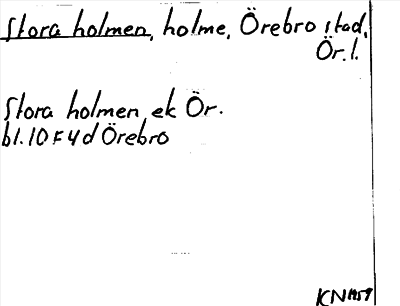 Stora holmen, holme, Örebro stad,
Ör. l.
Stora holmen ek Ör.
bl. 10 F 4 d Örebro
KN 1959